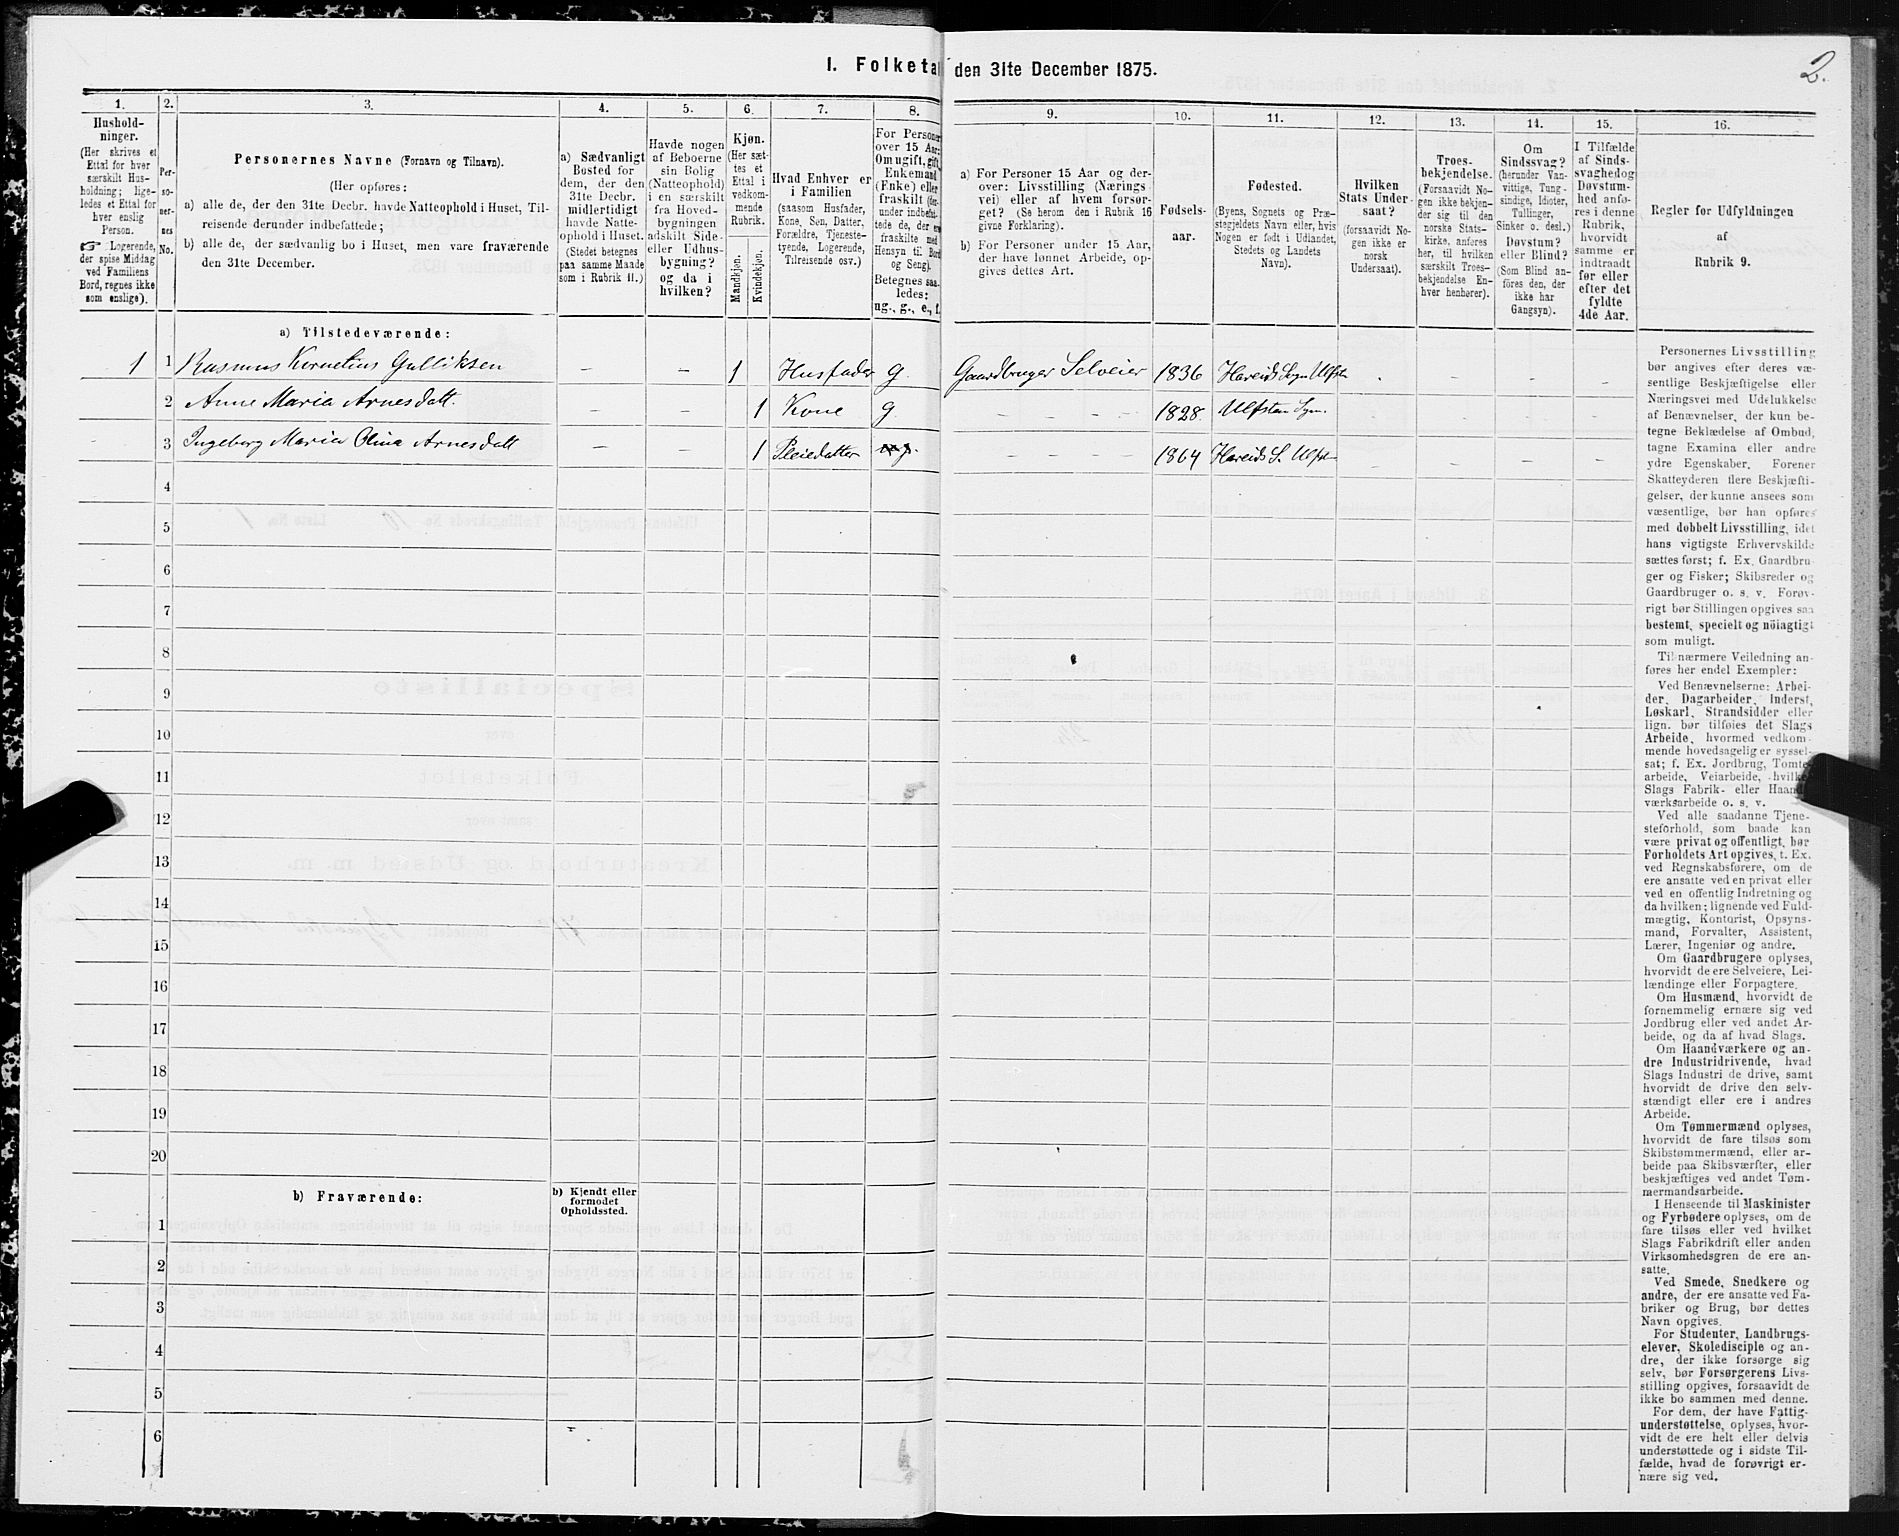 I. Folketal den 31te December 1875.
2.
1.
Hushold-
ninger.
(Her skrives et
Ettal for hver
særskilt Hus-
holdning; lige-
ledes et Ettal for
hver enslig
Person.
☞ Logerende,
der spise Middag
ved Familiens
Bord, regnes ikke
som enslige).
2.
Per-
so-
ner-
nes
No.
3.
Personernes Navne (Fornavn og Tilnavn).
(Her opføres:
a) alle de, der den 31te Decbr. havde Natteophold i Huset, Til-
reisende derunder indbefattede;
b) alle de, der sædvanlig bo i Huset, men vare fraværende
den 31te December.
4.
a) Sædvanligt
Bosted for
dem, der den
31te Decbr.
midlertidigt
havde Natte-
ophold i Huset.
(Stedet betegnes
paa samme Maade
som i Rubrik 11.)
5.
Havde nogen
af Beboerne
sin Bolig
(Natteophold)
i en særskilt
fra Hoved-
bygningen
adskilt Side-
eller Udhus-
bygning?
og da i
hvilken?
6.
Kjøn.
(Her sæt-
tes et
Ettal i
vedkom-
mende
Rubrik.
Mandkjøn.
Kvindekjøn.
7.
Hvad Enhver er
i Familien
(saasom Husfader,
Kone, Søn, Datter,
Forældre, Tjeneste-
tyende, Logerende,
Tilreisende osv.)
8.
For Personer
over 15 Aar:
Om ugift, gift,
Enkemand
(Enke) eller
fraskilt (der-
under indbefat-
tede de, der ere
fraskilte med
Hensyn til Bord
og Seng).
Betegnes saa-
ledes:
ug., g., e., f.
9.
a) For Personer 15 Aar og der-
over: Livsstilling (Nærings-
vei) eller af hvem forsør-
get? (Se herom den i Rubrik 16
givne Forklaring).
b) For Personer under 15 Aar,
der have lønnet Arbeide, op-
gives dettes Art.
10.
Fødsels-
aar.
11.
Fødested.
(Byens, Sognets og Præ-
stegjeldets Navn eller, hvis
Nogen er født i Udlandet,
Stedets og Landets
Navn).
12.
Hvilken
Stats Under-
saat?
(forsaavidt No-
gen ikke er
norsk
Undersaat).
13.
Troes-
bekjendelse.
(Forsaavidt No-
gen ikke bekjen-
der sig til den
norske Stats-
kirke, anføres
her, til hvilken
særskilt Troes-
bekjendelse En-
hver henhører).
14.
Om
Sindssvag?
(herunder Van-
vittige, Tung-
sindige, Idioter,
Tullinger,
Sinker o. desl.)
Døvstum?
eller Blind?
(Som Blind an-
føres den, der
ikke har
Gangsyn).
15.
I Tilfælde
af Sinds-
svaghed og
Døvstum-
hed anfø-
res i denne
Rubrik,
hvorvidt
samme er
indtraadt
før eller
efter det
fyldte
4de Aar.
16.
Regler før Udfyldningen
af
Rubrik 9.
a) Tilstedeværende:
1 1 Rasmus Kornelius Gulliksen – – 1 Husfader G. Gaardbruger Selveier 1836 Hareids Sogn Ulfst. . – – –
2 Anne Maria Arnesdatt. – – 1 Kone G – – – – 1828. Ulfsten Sgn. – – – –
3 Ingeborg Maria Olina Arnesdatt – – 1 Pleiedatter ug. – – – – 1864 Hareids S. Ulfst. – – – –
4
5
6
7
8
9
10
11
12
13
14
15
16
17
18
19
20
b) Fraværende:
b) Kjendt eller
formodet
Opholdssted.
1
2
3
4
5
6
Personernes Livsstilling
bør angives efter deres væ-
sentlige Beskjæftigelse eller
Næringsvei med Udelukkelse
af Benævnelser, der kun be-
tegne Beklædelse af Ombud,
tagne Examina eller andre
ydre Egenskaber. Forener
Skatteyderen flere Beskjæfti-
gelser, der kunne ansees som
væsentlige, bør han opføres
med dobbelt Livsstilling, idet
hans vigtigste Erhvervskilde
sættes først; f. Ex. Gaardbru-
ger og Fisker; Skibsreder og
Gaardbruger o. s. v. Forøv-
rigt bør Stillingen opgives saa
bestemt, specielt og nöiagtigt
som muligt.
Til nærmere Veiledning an-
føres her endel Exempler:
Ved Benævnelserne: Arbei-
der, Dagarbeider, Inderst,
Løskarl, Strandsidder eller
lign. bør tilføies det Slags
Arbeide, hvormed vedkom-
mende hovedsagelig er syssel-
sat; f. Ex. Jordbrug, Tomte-
arbeide, Veiarbeide, hvilket
Slags Fabrik- eller Haand-
værksarbeide o. s. v.
Ved alle saadanne Tjene-
steforhold, som baade kan
være privat og offentligt, bør
Forholdets Art opgives, t. Ex.
ved Regnskabsførere, om de
ere ansatte ved en privat eller
ved en offentlig Indretning og
da hvilken; lignende ved Fuld-
mægtig, Kontorist, Opsyns-
mand, Forvalter, Assistent,
Lærer, Ingeniør og andre.
Om Gaardbrugere oplyses,
hvorvidt de ere Selveiere, Lei-
lændinge eller Forpagtere.
Om Husmænd, hvorvidt de
fornemmelig ernære sig ved
Jordbrug eller ved andet Ar-
beide, og da af hvad Slags.
Om Haandværkere og an-
dre Industridrivende, hvad
Slags Industri de drive, samt
hvorvidt de drive den selv-
stændigt eller ere i andres
Arbeide.
Om Tømmermænd oplyses,
hvorvidt de fare tilsøs som
Skibstømmermænd, eller ar-
beide paa Skibsværfter, eller
beskjæftiges ved andet Tøm-
mermandsarbeide.
I Henseende til Maskinister
og Fyrbødere oplyses, om de
fare tilsøs eller ved hvilket
Slags Fabrikdrift eller anden
Virksomhedsgren de ere an-
satte.
Ved Smede, Snedkere og
andre, der ere ansatte ved Fa-
briker og Brug, bør dettes
Navn opgives.
For Studenter, Landbrugs-
elever, Skoledisciple og an-
dre, der ikke forsørge sig
selv, bør Forsørgerens Livs-
stilling opgives, forsaavidt de
ikke bo sammen med denne.
For dem, der have Fattig-
understøttelse, oplyses, hvor-
vidt de ere helt eller delvis
understøttede og i sidste Til-
fælde, hvad de forøvrigt er-
nære sig ved.